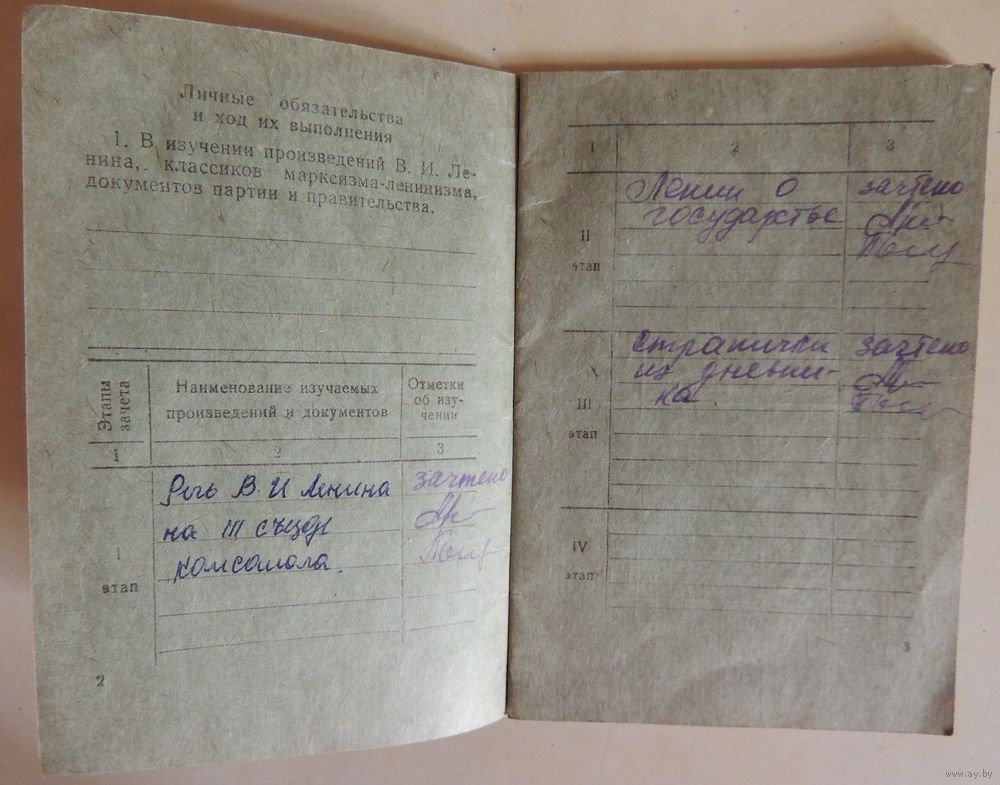 Личные обязательства
и ход их выполнения
1. В изучении произведений В. И. Ле-
нина, классиков марксизма-ленинизма,
документов партии и правительства.
Этапы зачета
Наименование изучаемых
произведений и документов
Отметки
об изу-
чении
1 2 3
I
этап
Речь В И Ленина
на III съезде
комсомола.
зачтено
2
1 2 3
II
этап
Ленин о
государстве
зачтено
III
этап
странички
из дневни-
ка.
зачтено
IV
этап
3
www.ay.by